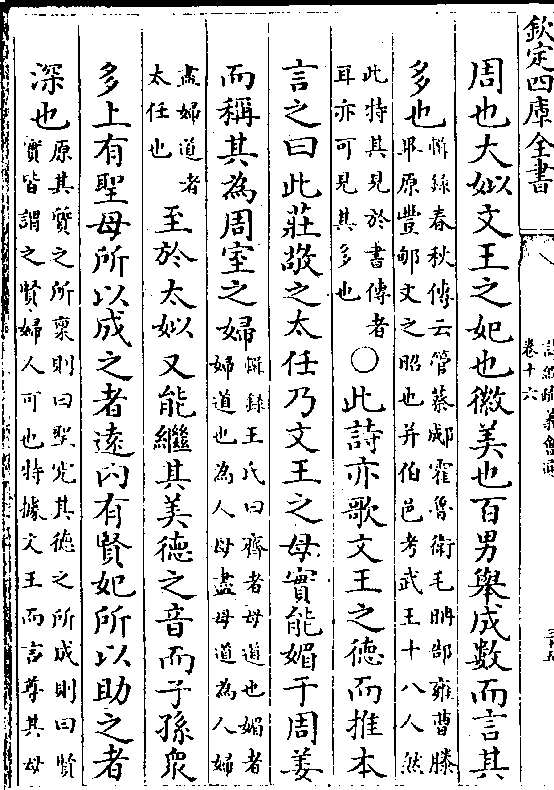 欽定四庫全書
卷十六
周也大姒文王之妃也徽美也百男舉成數而言其
多也
輯錄春秋傳云管蔡郕霍魯衛毛聃郜雍曹滕
畢原豐郇文之昭也并伯邑考武王十八人然
此特其見於書傳者
耳亦可見其多也
○此詩亦歌文王之德而推本
言之曰此莊敬之太任乃文王之母實能媚于周姜
而稱其為周室之婦
輯錄王氏曰齊者母道也媚者
婦道也為人母盡母道為人婦
盡婦道者
太任也
至於太姒又能繼其美德之音而子孫眾
多上有聖母所以成之者遠内有賢妃所以助之者
深也
原其質之所稟則曰聖究其德之所成則曰賢
實皆謂之賢婦人可也特據文王而言尊其母